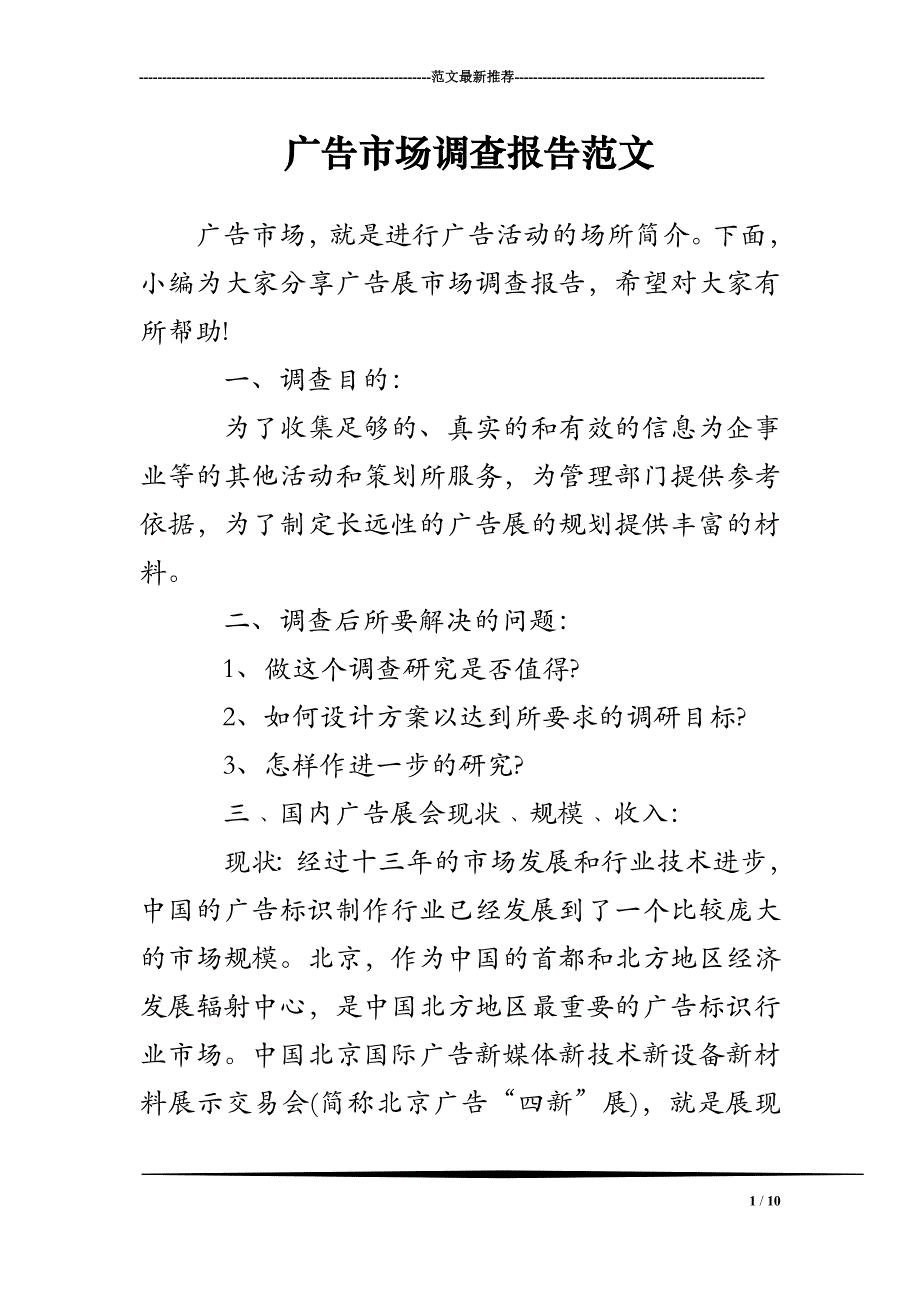 ---------------------------------------------------------------范文最新推荐------------------------------------------------------
广告市场调查报告范文
广告市场，就是进行广告活动的场所简介。下面，
小编为大家分享广告展市场调查报告，希望对大家有
所帮助!
一、调查目的：
为了收集足够的、真实的和有效的信息为企事
业等的其他活动和策划所服务，为管理部门提供参考
依据，为了制定长远性的广告展的规划提供丰富的材
料。
二、调查后所要解决的问题：
1、做这个调查研究是否值得?
2、如何设计方案以达到所要求的调研目标?
3、怎样作进一步的研究?
三﹑国内广告展会现状﹑规模﹑收入：
现状: 经过十三年的市场发展和行业技术进步，
中国的广告标识制作行业已经发展到了一个比较庞大
的市场规模。北京，作为中国的首都和北方地区经济
发展辐射中心，是中国北方地区最重要的广告标识行
业市场。中国北京国际广告新媒体新技术新设备新材
料展示交易会(简称北京广告“四新”展)，就是展现
1 / 10